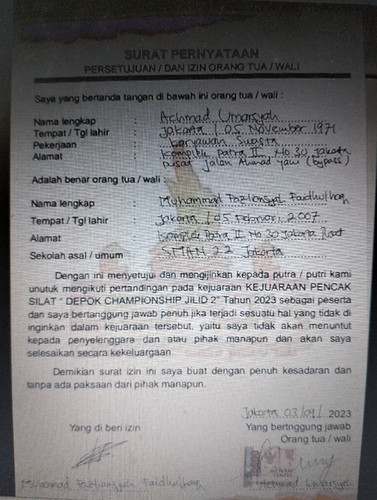 SURAT PERNYATAAN
PERSETUJUAN / DAN IZIN ORANG TUA / WALI
Saya yang bertanda tangan di bawah ini orang tua / wali :
Nama lengkap : Achmad Umarsyah
Tempat / Tgl lahir : Jakarta / 05 November 1971
Pekerjaan : karyawan Swasta
Alamat : Kompleks patra II No 30 Jakarta
pusat jalan Ahmad yani (bypass)
Adalah benar orang tua / wali :
Nama lengkap : Muhammad Fazliansyah
Tempat / Tgl lahir : Jakarta / 05 Februari 2007
Alamat : Komplek Patra II No 30 Jakarta Pusat
Sekolah asal / umum : SMAN 77 Jakarta
Dengan ini menyetujui dan mengijinkan kepada putra / putri kami
unutuk mengikuti pertandingan pada kejuaraan KEJUARAAN PENCAK
SILAT “ DEPOK CHAMPIONSHIP JILID 2” Tahun 2023 sebagai peserta
dan saya bertanggung jawab penuh jika terjadi sesuatu hal yang tidak di
inginkan dalam kejuaraan tersebut, yaitu saya tidak akan menuntut
kepada penyelenggara dan atau pihak manapun dan akan saya
selesaikan secara kekeluargaan.
Demikian surat izin ini saya buat dengan penuh kesadaran dan
tanpa ada paksaan dari pihak manapun.
Jakarta 03/01/ 2023
Yang di beri izin
Yang bertnggung jawab
Orang tua / wali